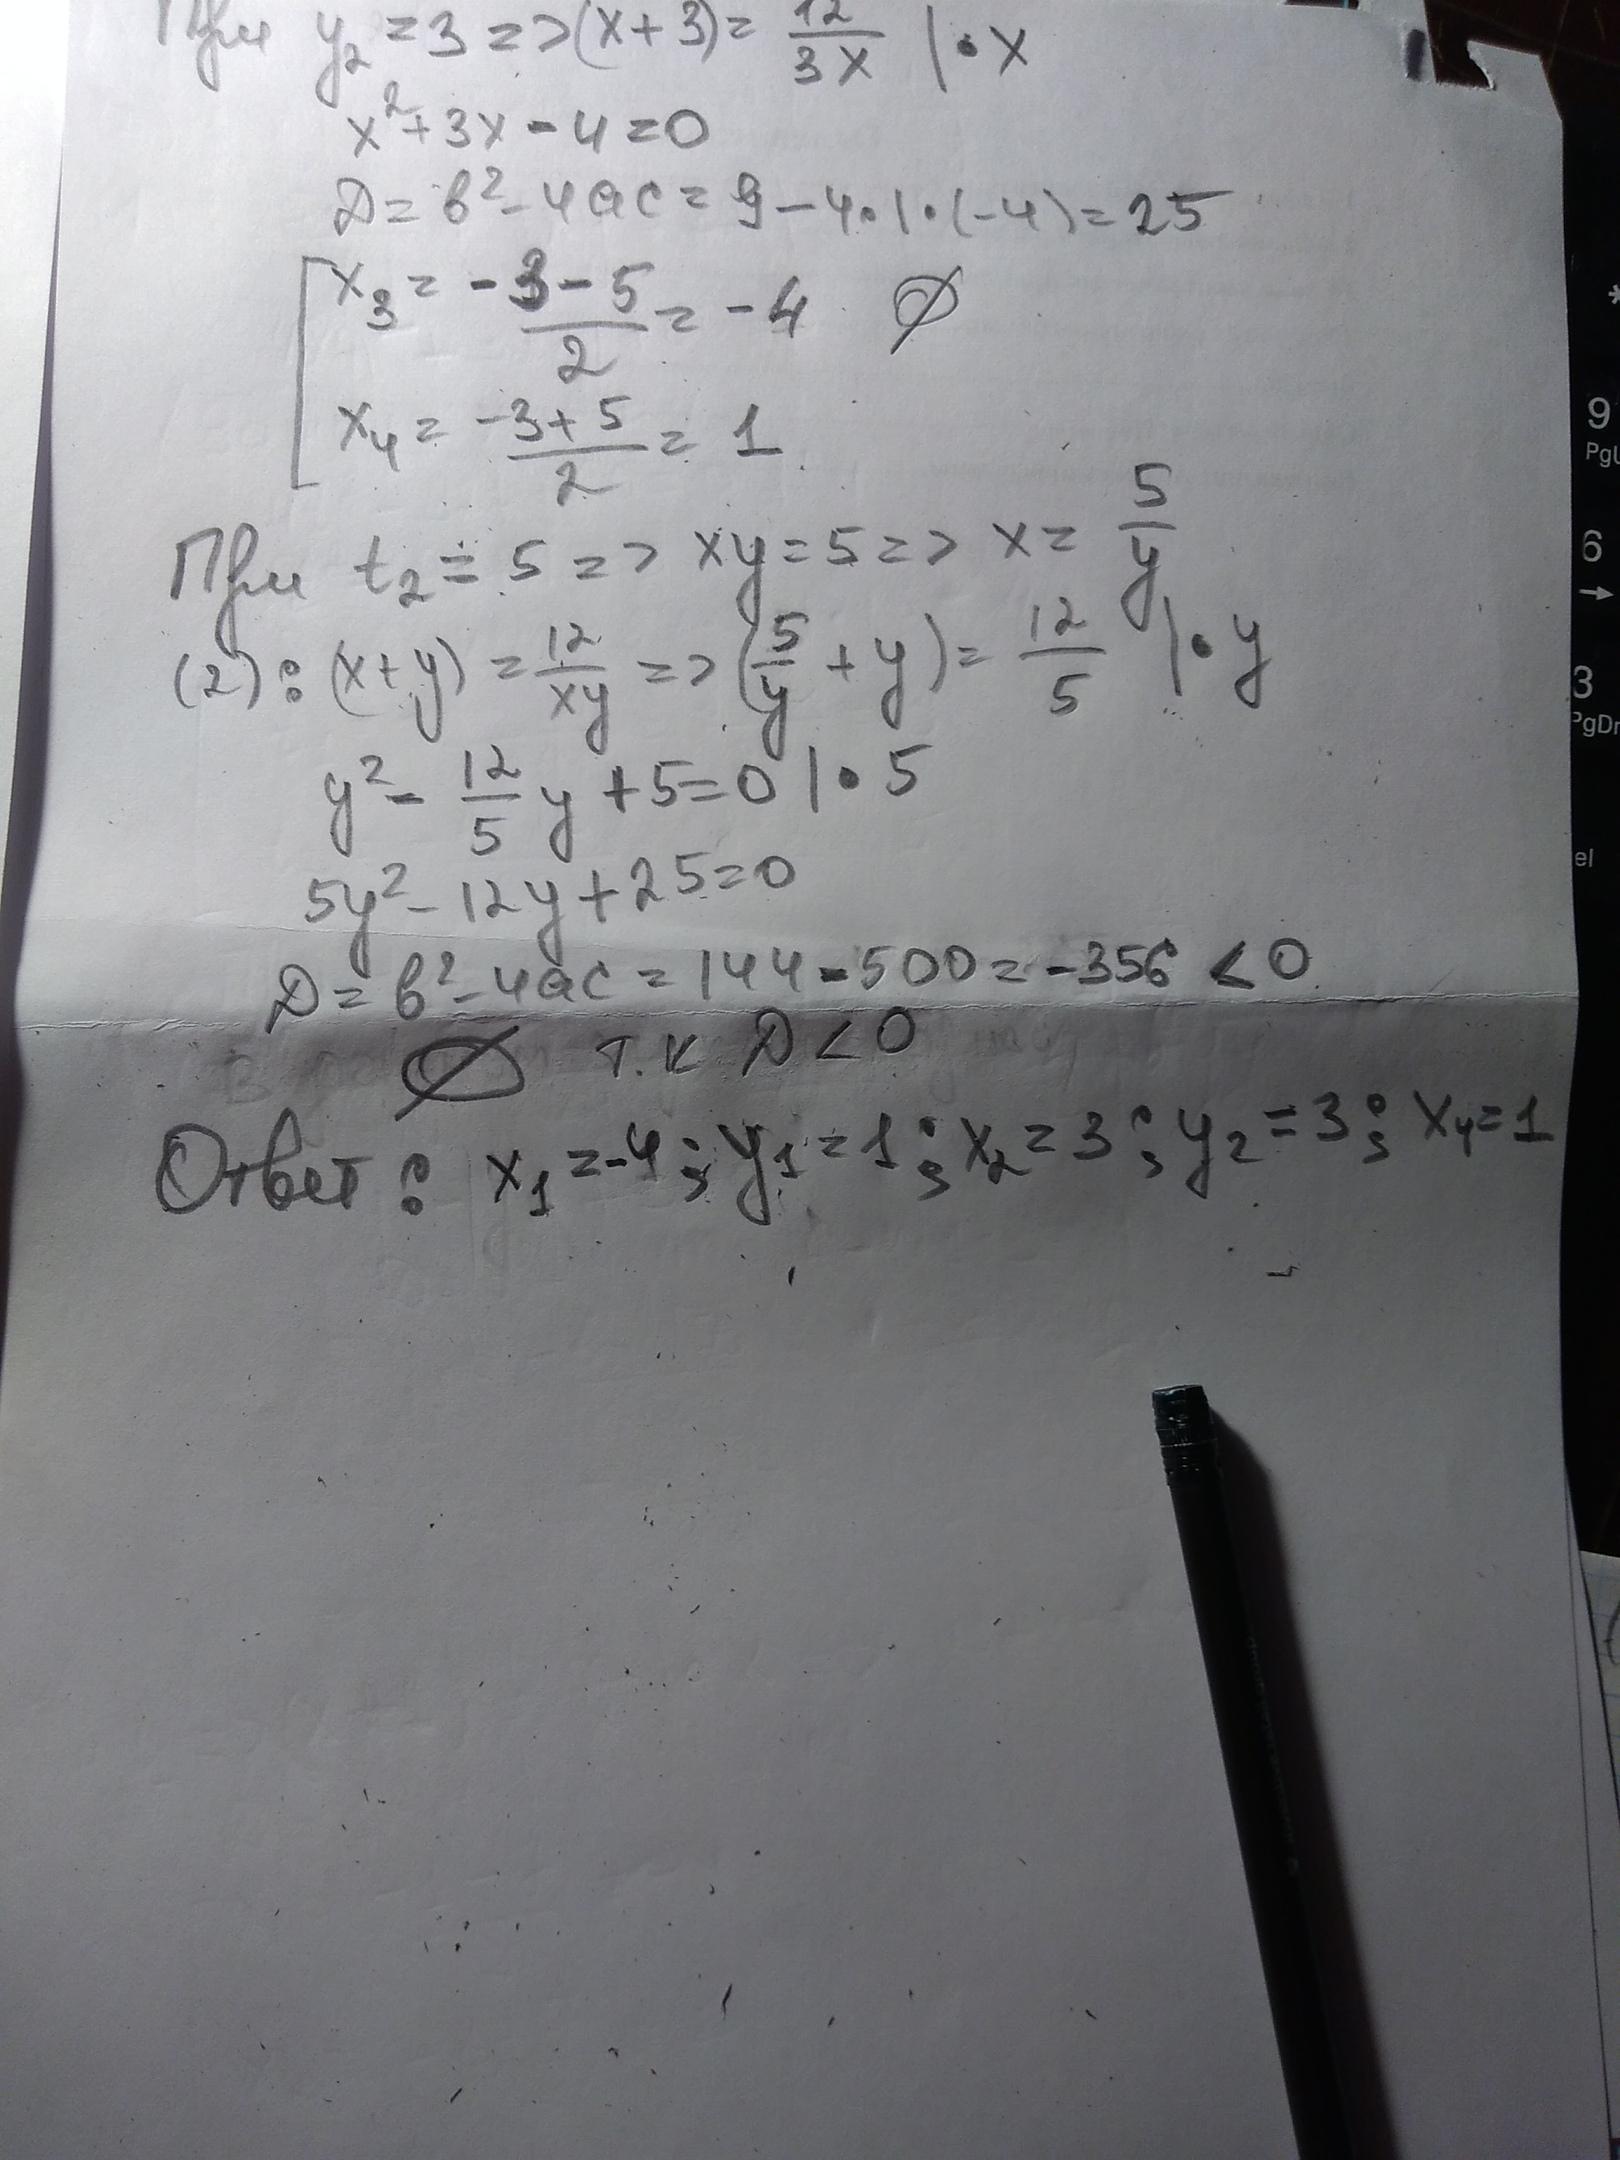 При y₂ = 3 => (x + 3) = 12/3x | • x
x² + 3x - 4 = 0
D = b² - 4ac = 9 - 4 • 1 • (-4) = 25
[ x₃ = (-3 - 5)/2 = -4 ∅
x₄ = (-3 + 5)/2 = 1
При t₂ = 5 => xy = 5 => x = 5/y
(2): (x + y) = 12/xy => (5/y + y) = 12/5 | • y
y² - 12/5 y + 5 = 0 | • 5
5y² - 12y + 25 = 0
D = b² - 4ac = 144 - 500 = -356 < 0
∅ т.к D < 0
Ответ: x₁ = -4; y₁ = 1; x₂ = 3; y₂ = 3; x₄ = 1
*
9
PgU
6
→
3
PgDn
el